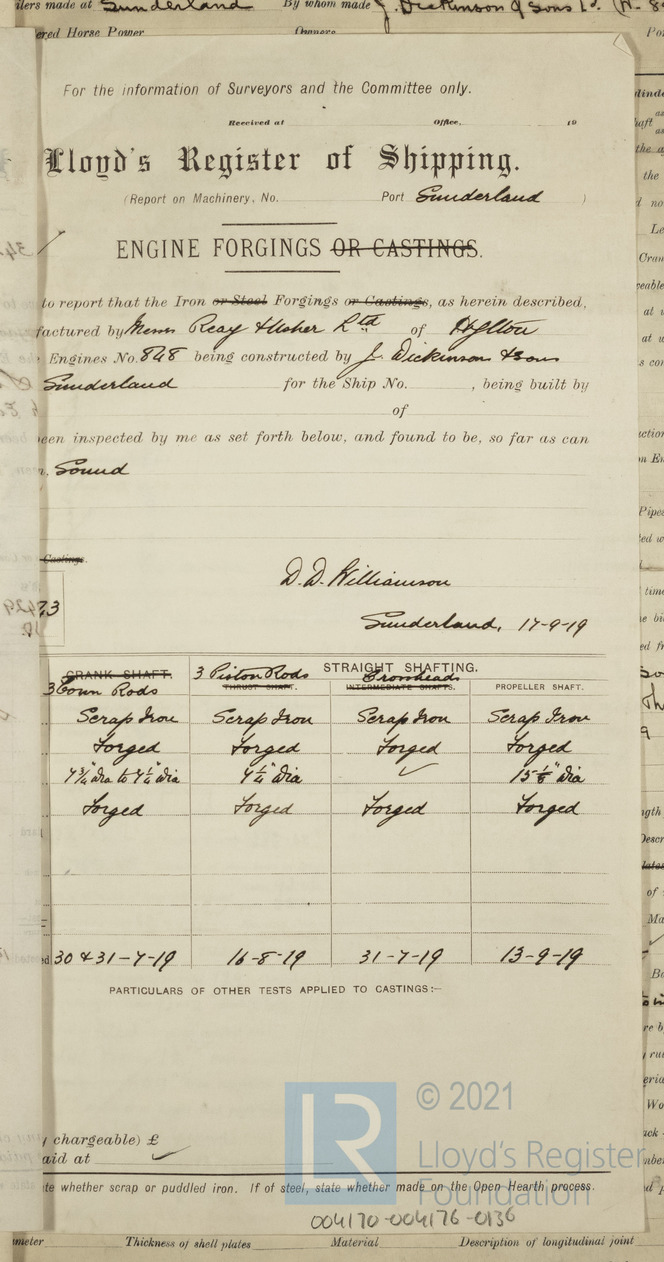 ilers made at Sunderland By whom made J. Dickinson & Sons Ld.
ered Horse Power Owners
For the information of Surveyors and the Committee only.
Received at Office, 19
Lloyd's Register of Shipping.
(Report on Machinery, No. Port Sunderland )
ENGINE FORGINGS OR CASTINGS.
to report that the Iron or Steel Forgings or Castings, as herein described,
factured by Messrs Reay & Usher Ltd of Hylton
Engines No. 848 being constructed by J. Dickinson & Sons
Sunderland for the Ship No. , being built by
of
een inspected by me as set forth below, and found to be, so far as can
n, Sound
Castings.
D. D. Williamson
73
Sunderland, 17-9-19
CRANK SHAFT. 3 Piston Rods STRAIGHT SHAFTING.
3 Conn Rods THRUST SHAFT. Crossheads INTERMEDIATE SHAFTS. PROPELLER SHAFT.
Scrap Iron Scrap Iron Scrap Iron Scrap Iron
Forged Forged Forged Forged
7¾" dia to 7¼" dia 7¼" dia ✓ 15⅛" dia
Forged Forged Forged Forged
ed 30 & 31-7-19 16-8-19 31-7-19 13-9-19
PARTICULARS OF OTHER TESTS APPLIED TO CASTINGS:—
© 2021
LR
Lloyd's Register
Foundation
chargeable) £
aid at ✓
te whether scrap or puddled iron. If of steel, state whether made on the Open Hearth process.
004170-004176-0136
meter Thickness of shell plates Material Description of longitudinal joint